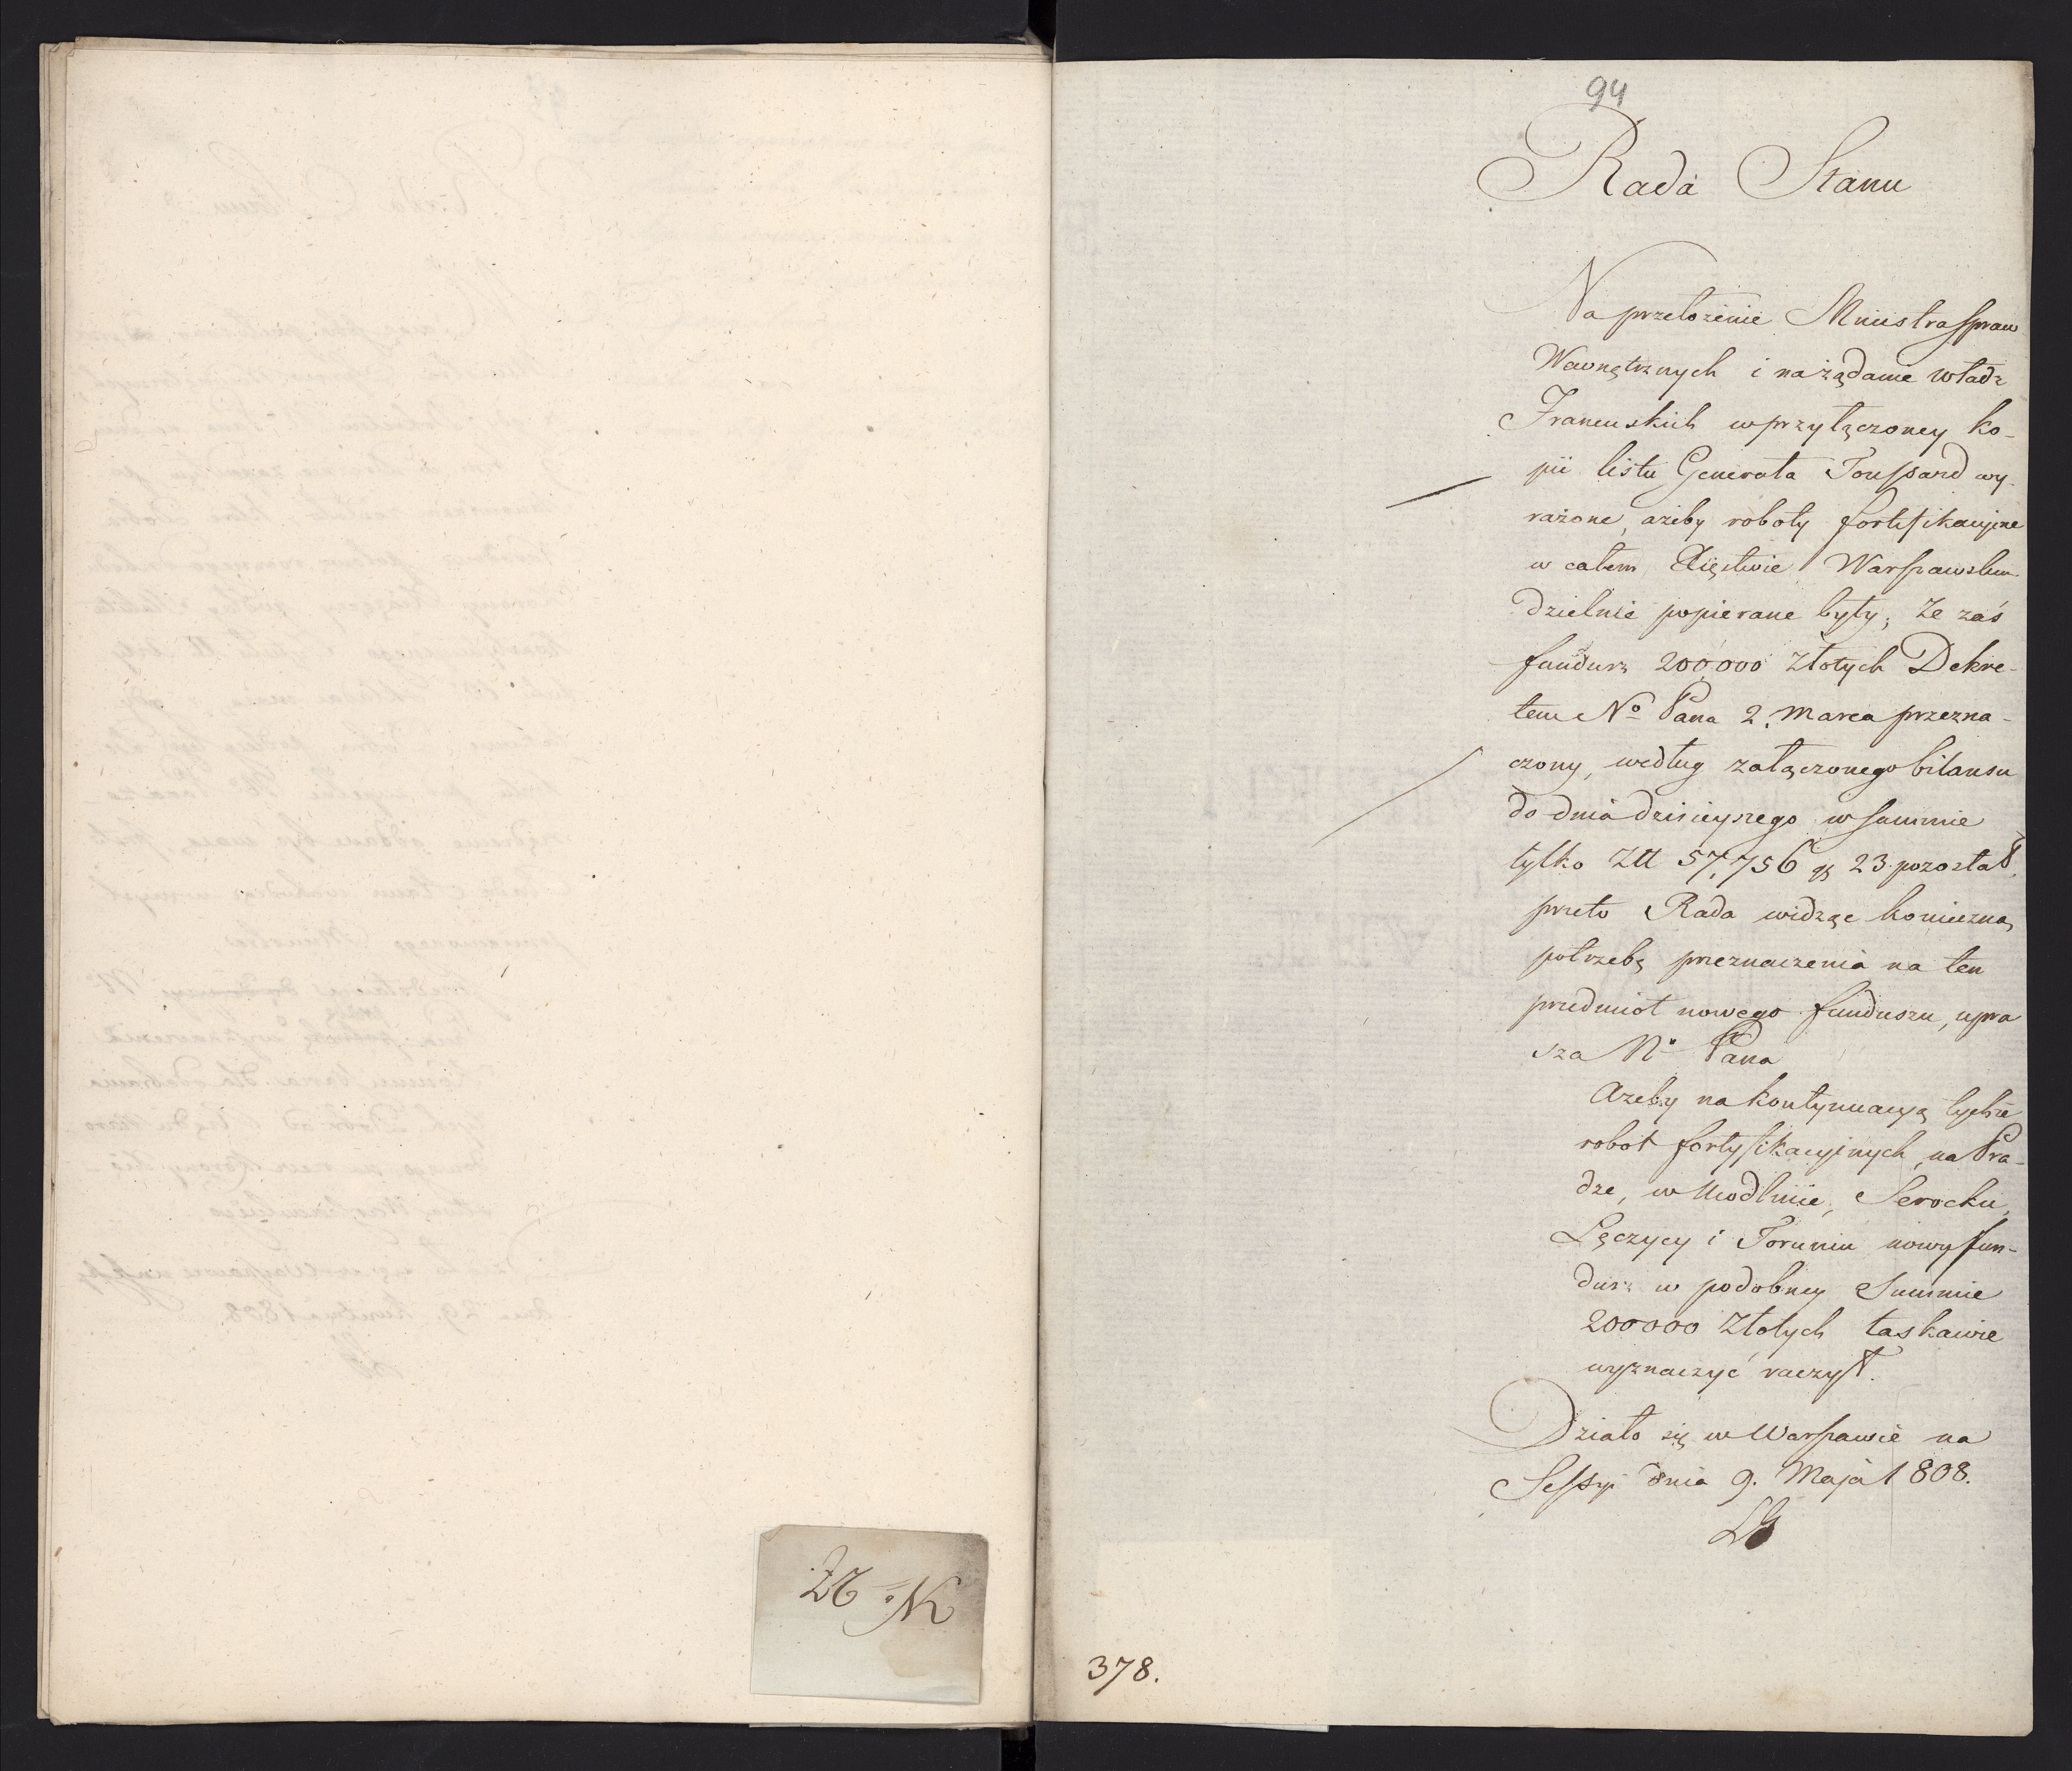 94
Rada Stanu
Na przełożenie Ministra Spraw
Wewnętrznych i na żądanie władz
Francuskich w przyłączoney ko-
pii listu Generała Toussard wy-
rażone, ażeby roboty fortifikacyine
w całem Xięstwie Warszawskim
dzielnie popierane były; że zaś
fundusz 200,000 złotych Dekre-
tem No Pana 2. Marca przezna-
czony, według załączonego bilansu
do dnia dzisieyszego w summie
tylko Złł 57,756 gr 23. pozostał,
przeto Rada widząc konieczną
potrzebę przeznaczenia na ten
przedmiot nowego funduszu, upra
sza No Pana
Ażeby na kontynuacyą tychże
robot fortyfikacyinych, na Pra-
dze, w Modlinie, Serocku,
Łęczycy i Toruniu nowy fun-
dusz w podobney Summie
200000 Złotych łaskawie
wyznaczyć raczył.
Działo się w Warszawie na
Sessyi dnia 9. Maja 1808.
378.